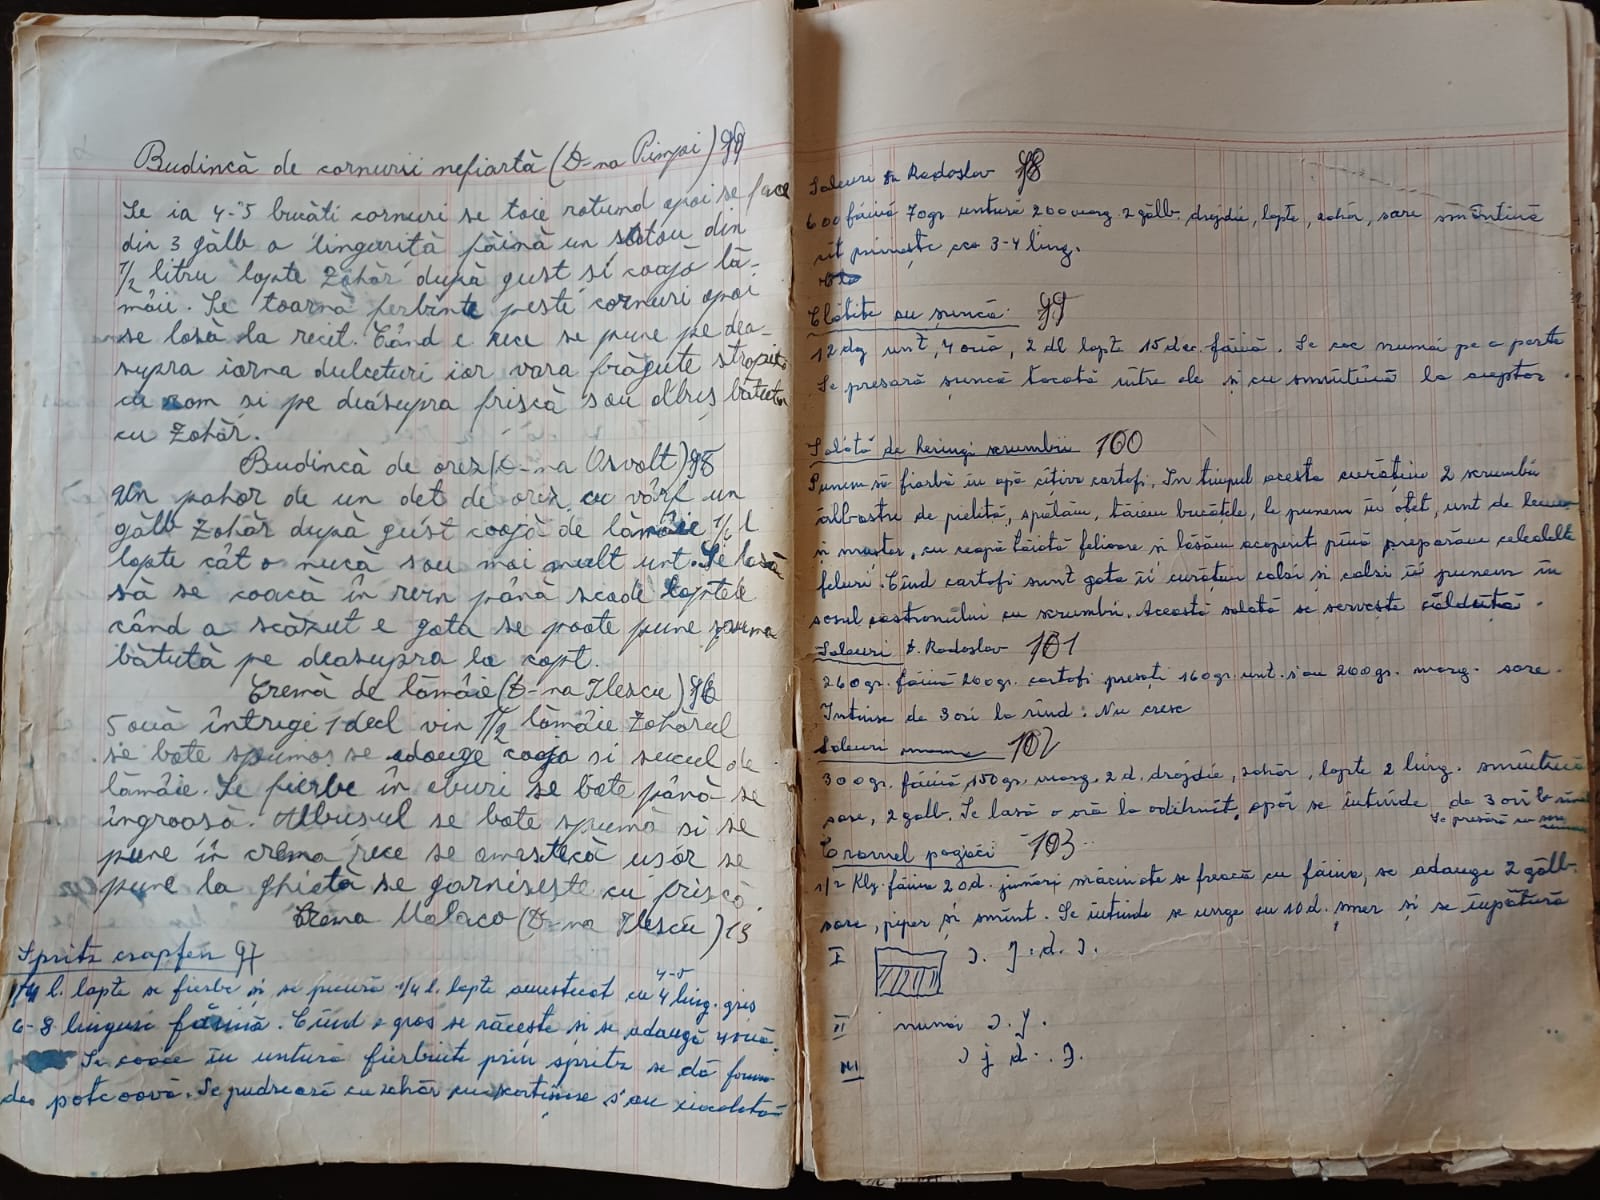 Budincă de cornuri nefiartă (D-na Pimpi)
Se ia 4-5 bucăti cornuri se taie rotund apoi se face
din 3 gălb o linguriță făină un șatou din
1/2 litru lapte zahăr după gust și coajă lă-
mâie. Se toarnă ferbinte peste cornuri apoi
se lasă la recit. Când e rece se pune pe dea-
supra iarna dulceturi iar vara frăgute stropite
cu rom si pe deasupra frișcă sau albuș bătut
cu zahăr.
Budincă de orez (D-na Osvolt) 95
Un pahar de un det de orez cu vârf un
gălb zahăr după gust coajă de lămâie 1/2 l
lapte cât o nucă sau mai mult unt. Se lasă
să se coacă în rern până scade laptele
când a scăzut e gata se poate pune spuma
bătută pe deasupra la copt.
Cremă de lămâie (D-na Ilescu) 96
5 ouă întregi 1 decl vin 1 1/2 lămâie zahărul
se bate spumos se adauge coaja si sucul de
lămâie. Se fierbe în aburi se bate până se
îngroasă. Albusul se bate spumă si se
pune în crema rece se amestecă ușor se
pune la ghiată se garnisește cu frișcă.
Crema Malaco (D-na Ilescu) 13
Spritz crapfen 97
1/4 l. lapte se fierbe și se picură 1/4 l. lapte amestecat cu 4 ling. gris
4-5
6-8 linguri făină. Cînd e gros se răcește si se adaugă 4 ouă.
Se coace în untură fierbinte prin spritz se dă forma
de potcoavă. Se pudrează cu zahăr cu scortișoare s'au ciocolată
Saleuri Radoslav 98
600 făină 70gr. untură 200 marg. 2 gălb. drojdie, lapte, zahăr, sare smîntină
cît primește cca 3-4 ling.
Clătite cu șuncă 99
12 dg unt, 4 ouă, 2 dl lapte 15 dec. făină. Se coc numai pe o parte
Se presară șuncă tocată între ele și cu smîntînă la cuptor.
Salată de heringi scrumbii 100
Punem să fiarbă în apă cîtiva cartofi. In timpul acesta curățim 2 scrumbii
albastre de pielită, spălăm, tăiem bucățele, le punem în oțet, unt de lemn
și muștar, cu ceapă tăiată felioare si lăsăm acoperit pînă preparăm celealalte
feluri. Cînd cartofi sunt gata îi curățim calzi si calzi îi punem în
sosul castronului cu scrumbii. Această salată se servește călduță.
Saleuri D. Radoslav 101
260gr. făină 200gr. cartofi presați 160gr. unt. s'au 200gr. marg. sare.
Intinse de 3 ori la rînd. Nu cresc
Saleuri mama 102
300gr. făină, 150gr. marg. 2 d. drojdie, zahăr, lapte 2 ling. smîntînă
sare, 2 galb. Se lasă o oră la odihnit, apoi se întinde de 3 ori la rînd
Se presară cu
Cramel pogăci 103
1/2 Klg. făină 20d. jumări măcinate se freacă cu făina, se adauge 2 gălb.
sare, piper și smînt. Se întinde se unge cu 10d. și se împătură
I
II numai
III